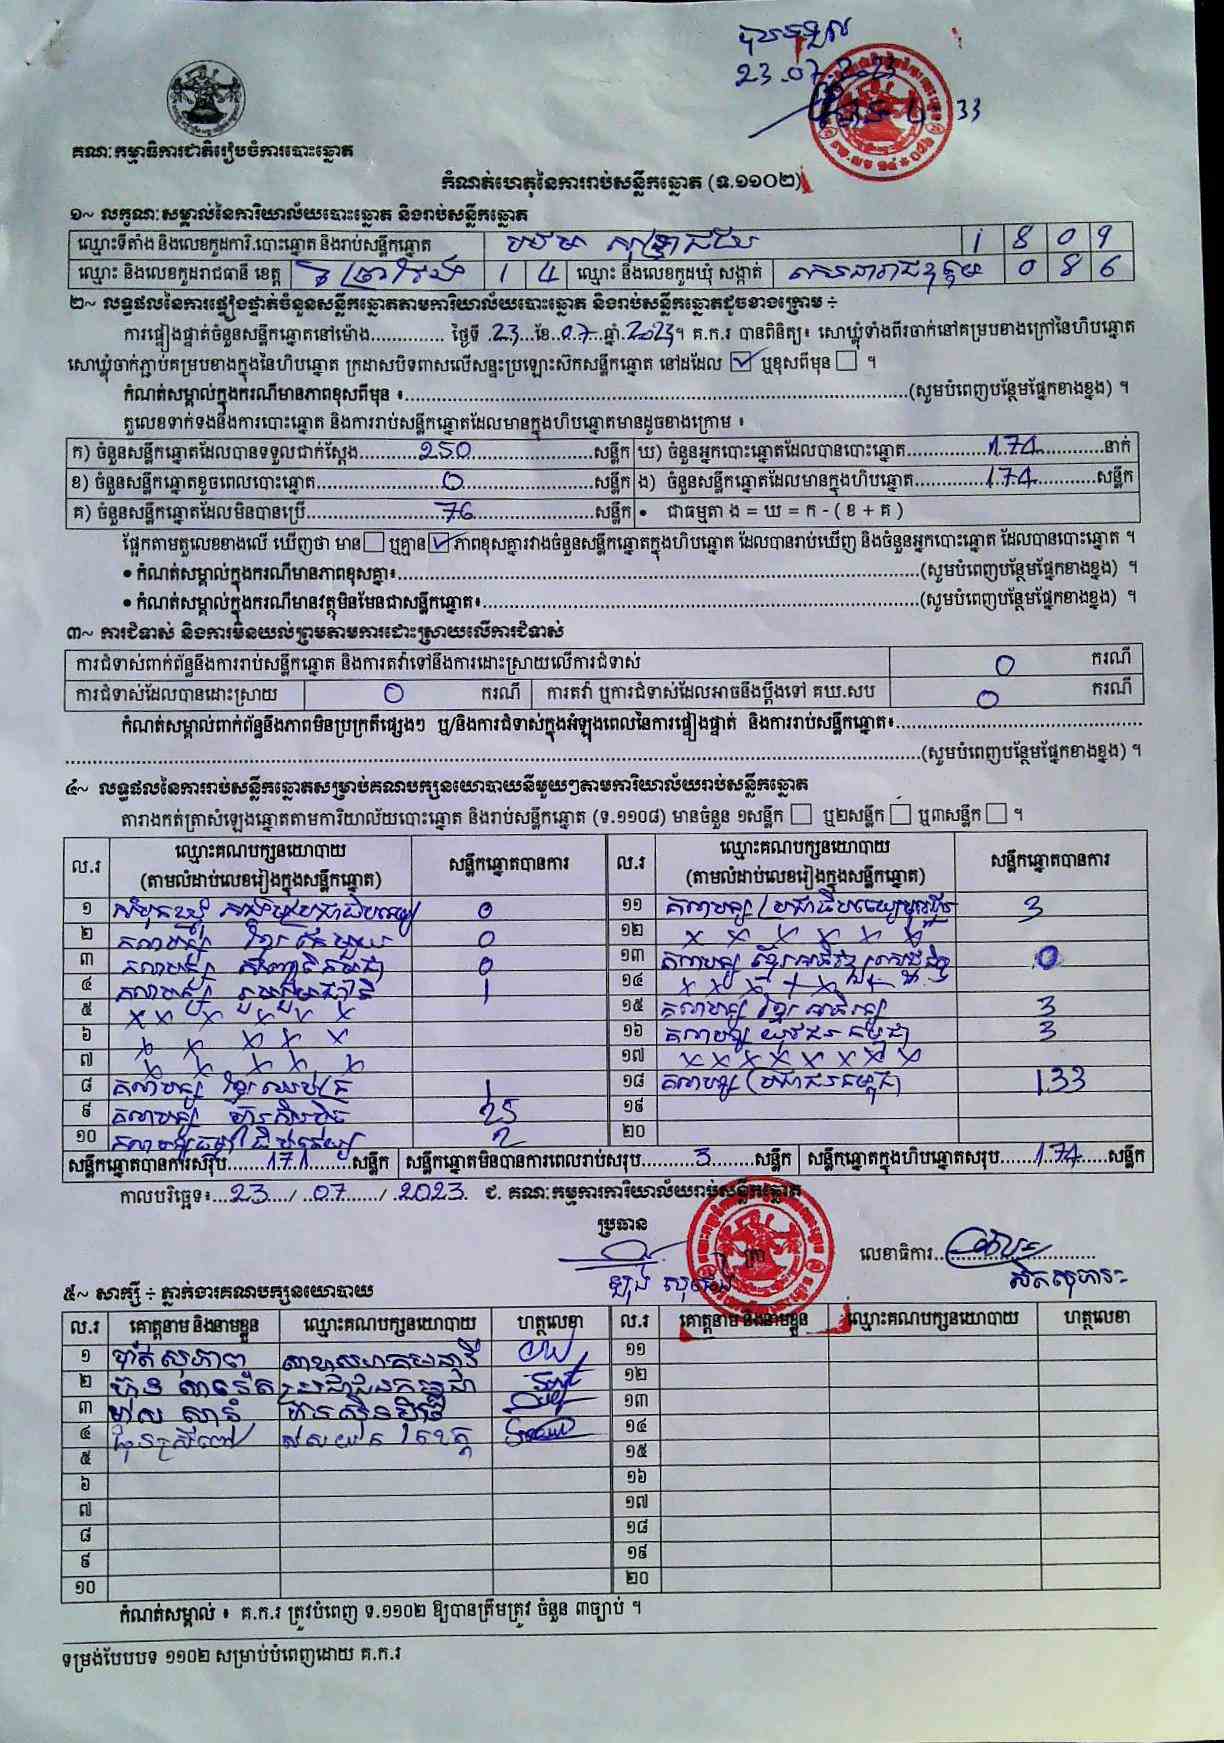 បានទទួល
23.07.2023
គណៈកម្មាធិការជាតិរៀបចំការបោះឆ្នោត
កំណត់ហេតុនៃការរាប់សន្លឹកឆ្នោត (ទ.១១០២)
១~ លក្ខណៈសម្គាល់នៃការិយាល័យបោះឆ្នោត និងរាប់សន្លឹកឆ្នោត
ឈ្មោះទីតាំង និងលេខកូដការិ.បោះឆ្នោត និងរាប់សន្លឹកឆ្នោត 1 8 0 9
ឈ្មោះ និងលេខកូដរាជធានី ខេត្ត ព្រៃវែង 1 4 ឈ្មោះ និងលេខកូដឃុំ សង្កាត់ សេនារាជឧត្តម 0 8 6
២~ លទ្ធផលនៃការផ្ទៀងផ្ទាត់ចំនួនសន្លឹកឆ្នោតតាមការិយាល័យបោះឆ្នោត និងរាប់សន្លឹកឆ្នោតដូចខាងក្រោម ÷
ការផ្ទៀងផ្ទាត់ចំនួនសន្លឹកឆ្នោតនៅម៉ោង.............. ថ្ងៃទី 23 ខែ 07 ឆ្នាំ 2023។ គ.ក.រ បានពិនិត្យ៖ សោឃ្លុំទាំងពីរចាក់នៅគម្របខាងក្រៅនៃហិបឆ្នោត
សោឃ្លុំចាក់ភ្ជាប់គម្របខាងក្នុងនៃហិបឆ្នោត ក្រដាសបិទពាសលើសន្ទះប្រឡោះស៊កសន្លឹកឆ្នោត នៅដដែល ☑ ឬខុសពីមុន ☐ ។
កំណត់សម្គាល់ក្នុងករណីមានភាពខុសពីមុន ៖..............(សូមបំពេញបន្ថែមផ្នែកខាងខ្នង) ។
តួលេខទាក់ទងនឹងការបោះឆ្នោត និងការរាប់សន្លឹកឆ្នោតដែលមានក្នុងហិបឆ្នោតមានដូចខាងក្រោម ៖
ក) ចំនួនសន្លឹកឆ្នោតដែលបានទទួលជាក់ស្តែង 250 សន្លឹក ឃ) ចំនួនអ្នកបោះឆ្នោតដែលបានបោះឆ្នោត 174 នាក់
ខ) ចំនួនសន្លឹកឆ្នោតខូចពេលបោះឆ្នោត 0 សន្លឹក ង) ចំនួនសន្លឹកឆ្នោតដែលមានក្នុងហិបឆ្នោត 174 សន្លឹក
គ) ចំនួនសន្លឹកឆ្នោតដែលមិនបានប្រើ 76 សន្លឹក • ជាធម្មតា ង = ឃ = ក - ( ខ + គ )
ផ្អែកតាមតួលេខខាងលើ ឃើញថា មាន ☐ ឬគ្មាន ☑ ភាពខុសគ្នារវាងចំនួនសន្លឹកឆ្នោតក្នុងហិបឆ្នោត ដែលបានរាប់ឃើញ និងចំនួនអ្នកបោះឆ្នោត ដែលបានបោះឆ្នោត ។
• កំណត់សម្គាល់ក្នុងករណីមានភាពខុសគ្នា៖..............(សូមបំពេញបន្ថែមផ្នែកខាងខ្នង) ។
• កំណត់សម្គាល់ក្នុងករណីមានវត្ថុមិនមែនជាសន្លឹកឆ្នោត៖..............(សូមបំពេញបន្ថែមផ្នែកខាងខ្នង) ។
៣~ ការជំទាស់ និងការមិនយល់ព្រមតាមការដោះស្រាយលើការជំទាស់
ការជំទាស់ពាក់ព័ន្ធនឹងការរាប់សន្លឹកឆ្នោត និងការតវ៉ាទៅនឹងការដោះស្រាយលើការជំទាស់ 0 ករណី
ការជំទាស់ដែលបានដោះស្រាយ 0 ករណី ការតវ៉ា ឬការជំទាស់ដែលអាចនឹងប្តឹងទៅ គឃ.សប 0 ករណី
កំណត់សម្គាល់ពាក់ព័ន្ធនឹងភាពមិនប្រក្រតីផ្សេងៗ ឬ/និងការជំទាស់ក្នុងអំឡុងពេលនៃការផ្ទៀងផ្ទាត់ និងការរាប់សន្លឹកឆ្នោត៖..............
..............(សូមបំពេញបន្ថែមផ្នែកខាងខ្នង) ។
៤~ លទ្ធផលនៃការរាប់សន្លឹកឆ្នោតសម្រាប់គណបក្សនយោបាយនីមួយៗតាមការិយាល័យរាប់សន្លឹកឆ្នោត
តារាងកត់ត្រាសំឡេងឆ្នោតតាមការិយាល័យបោះឆ្នោត និងរាប់សន្លឹកឆ្នោត (ទ.១១០៨) មានចំនួន ១សន្លឹក ☐ ឬ២សន្លឹក ☐ ឬ៣សន្លឹក ☐ ។
ល.រ ឈ្មោះគណបក្សនយោបាយ (តាមលំដាប់លេខរៀងក្នុងសន្លឹកឆ្នោត) សន្លឹកឆ្នោតបានការ ល.រ ឈ្មោះគណបក្សនយោបាយ (តាមលំដាប់លេខរៀងក្នុងសន្លឹកឆ្នោត) សន្លឹកឆ្នោតបានការ
១ 0 ១១ គណបក្ស 3
២ គណបក្ស ខ្មែរតែមួយ 0 ១២ x x x x x x
៣ គណបក្ស 0 ១៣ គណបក្ស 0
៤ គណបក្ស 1 ១៤ x x x x x
៥ x x x x x x ១៥ គណបក្ស ខ្មែរ 3
៦ x x x x x ១៦ គណបក្ស យុវជនកម្ពុជា 3
៧ x x x x x ១៧ x x x x x x x x
៨ គណបក្ស ខ្មែរឈប់ក្រ 1 ១៨ គណបក្ស ប្រជាជនកម្ពុជា 133
៩ គណបក្ស ហ៊្វុនស៊ិនប៉ិច 25 ១៩
១០ គណបក្ស 2 ២០
សន្លឹកឆ្នោតបានការសរុប 171 សន្លឹក សន្លឹកឆ្នោតមិនបានការពេលរាប់សរុប 3 សន្លឹក សន្លឹកឆ្នោតក្នុងហិបឆ្នោតសរុប 174 សន្លឹក
កាលបរិច្ឆេទ៖ 23 / 07 / 2023 ជ. គណៈកម្មការការិយាល័យរាប់សន្លឹកឆ្នោត
ប្រធាន ត្រា លេខាធិការ
៥~ សាក្សី ÷ ភ្នាក់ងារគណបក្សនយោបាយ
ល.រ គោត្តនាម និងនាមខ្លួន ឈ្មោះគណបក្សនយោបាយ ហត្ថលេខា ល.រ គោត្តនាម និងនាមខ្លួន ឈ្មោះគណបក្សនយោបាយ ហត្ថលេខា
១ ១១
២ ប្រជាជនកម្ពុជា ១២
៣ ហ៊្វុនស៊ិនប៉ិច ១៣
៤ ១៤
៥ ១៥
៦ ១៦
៧ ១៧
៨ ១៨
៩ ១៩
១០ ២០
កំណត់សម្គាល់ ៖ គ.ក.រ ត្រូវបំពេញ ទ.១១០២ ឱ្យបានត្រឹមត្រូវ ចំនួន ៣ច្បាប់ ។
ទម្រង់បែបបទ ១១០២ សម្រាប់បំពេញដោយ គ.ក.រ